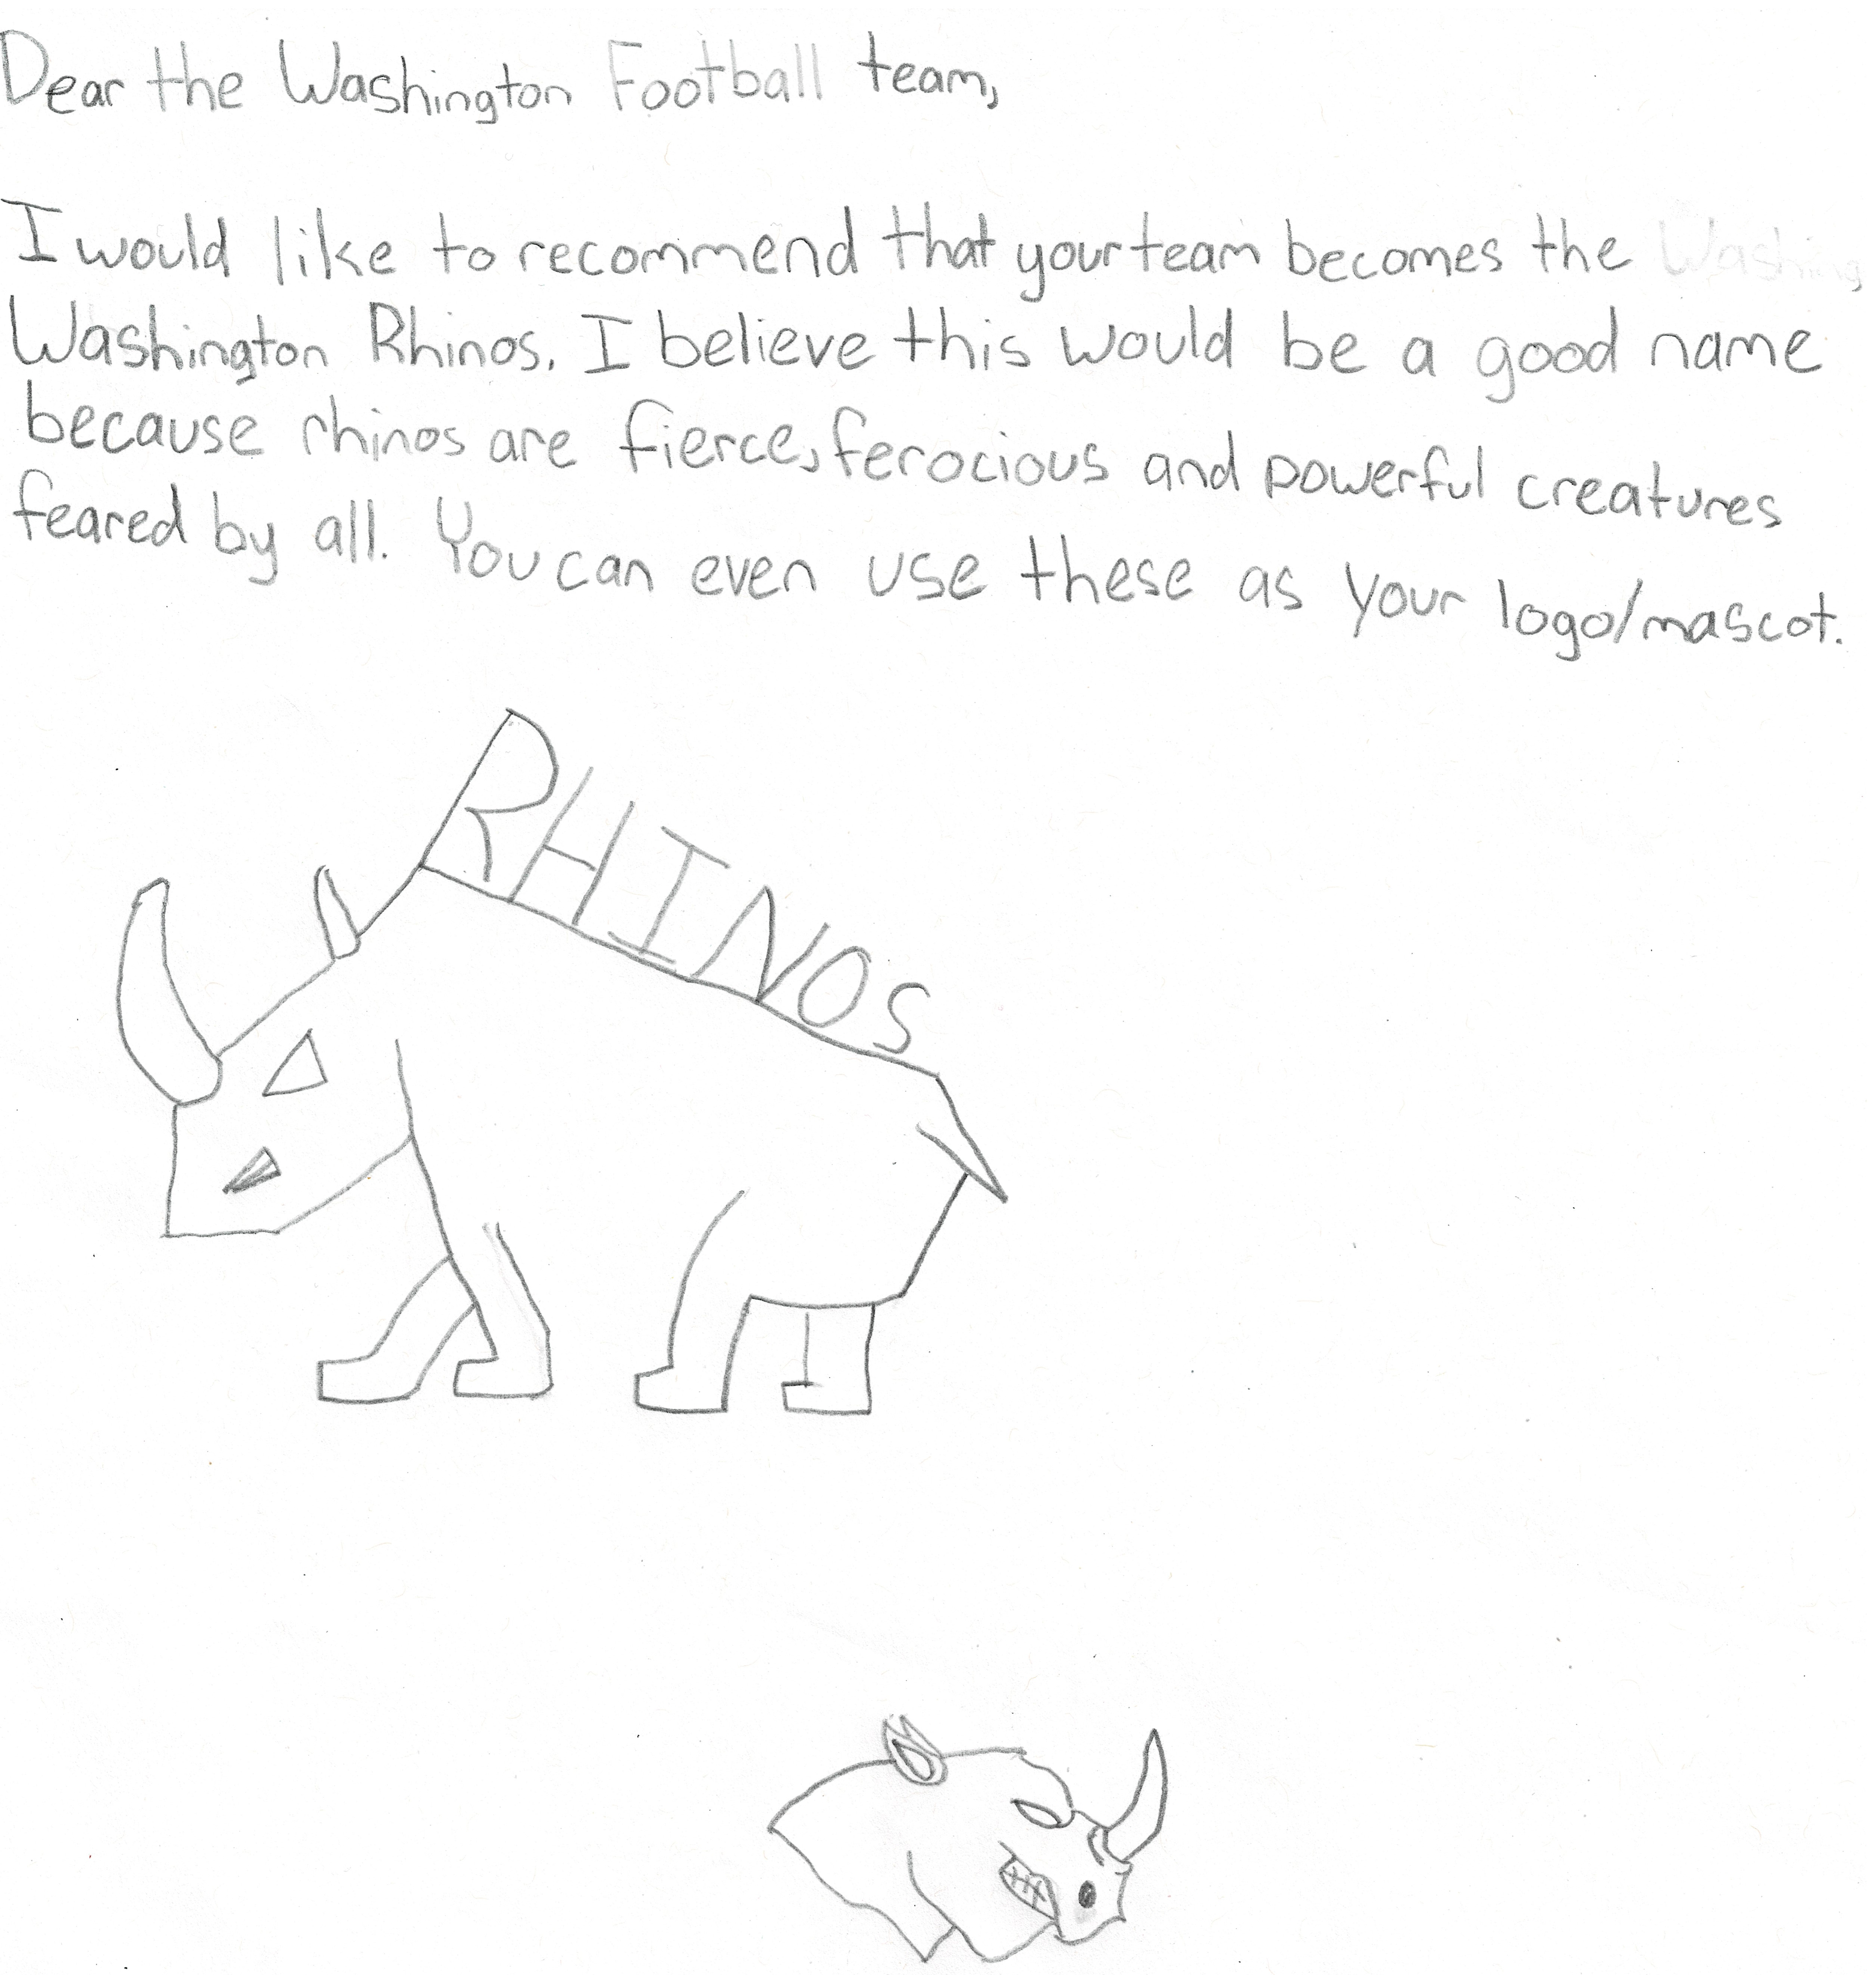 Dear the Washington Football team,
I would like to recommend that your team becomes the Washing
Washington Rhinos. I believe this would be a good name
because rhinos are fierce, ferocious and powerful creatures
feared by all. You can even use these as your logo/mascot.
RHINOS